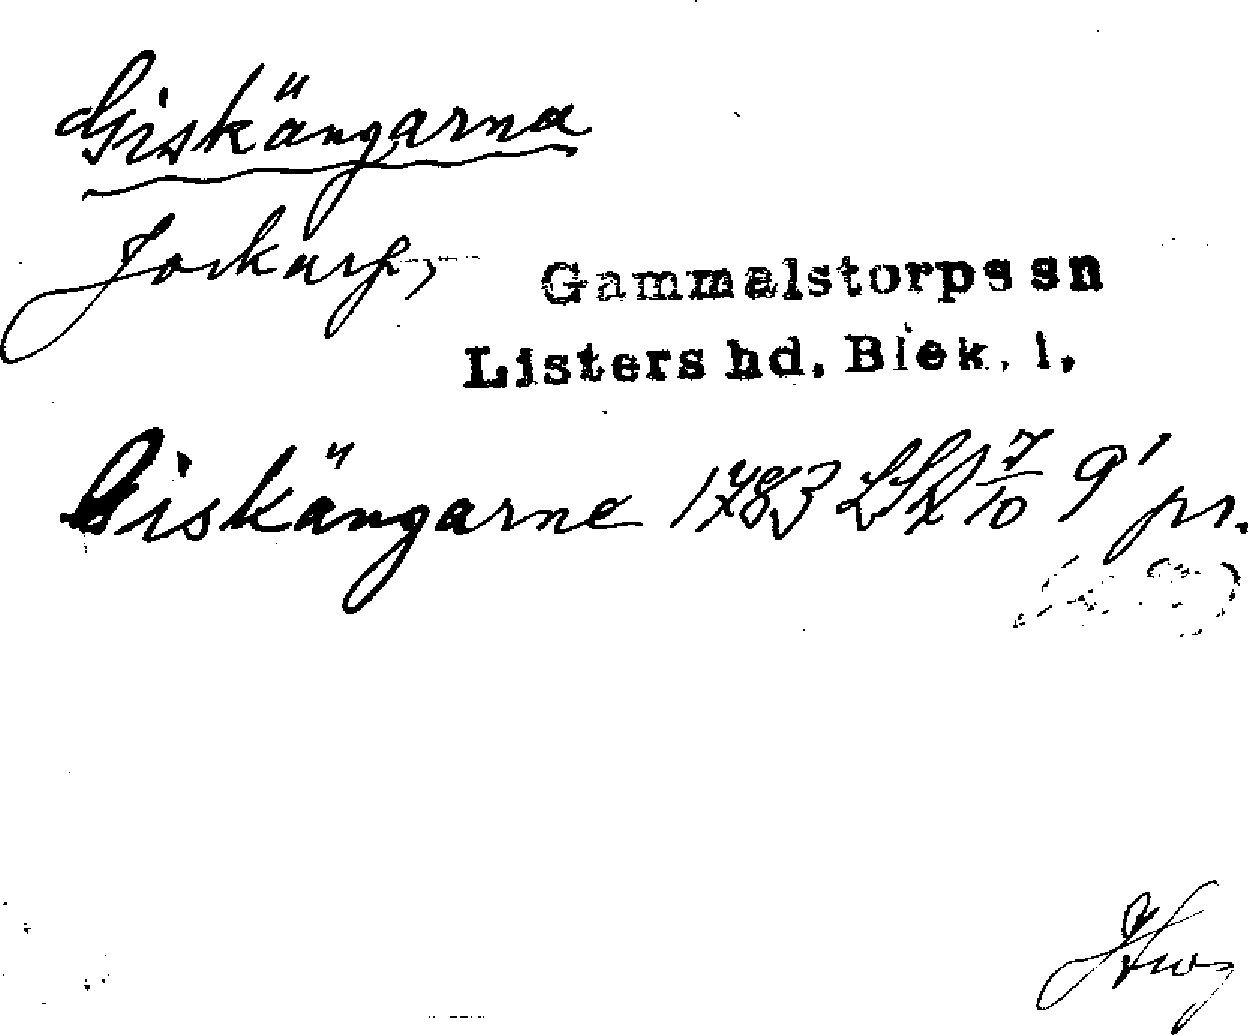 Giskängarna
Jockarp,
Gammalstorps sn
Listers hd. Blek. l.
Giskängarne 1783 LSA 7/10 9' pr.